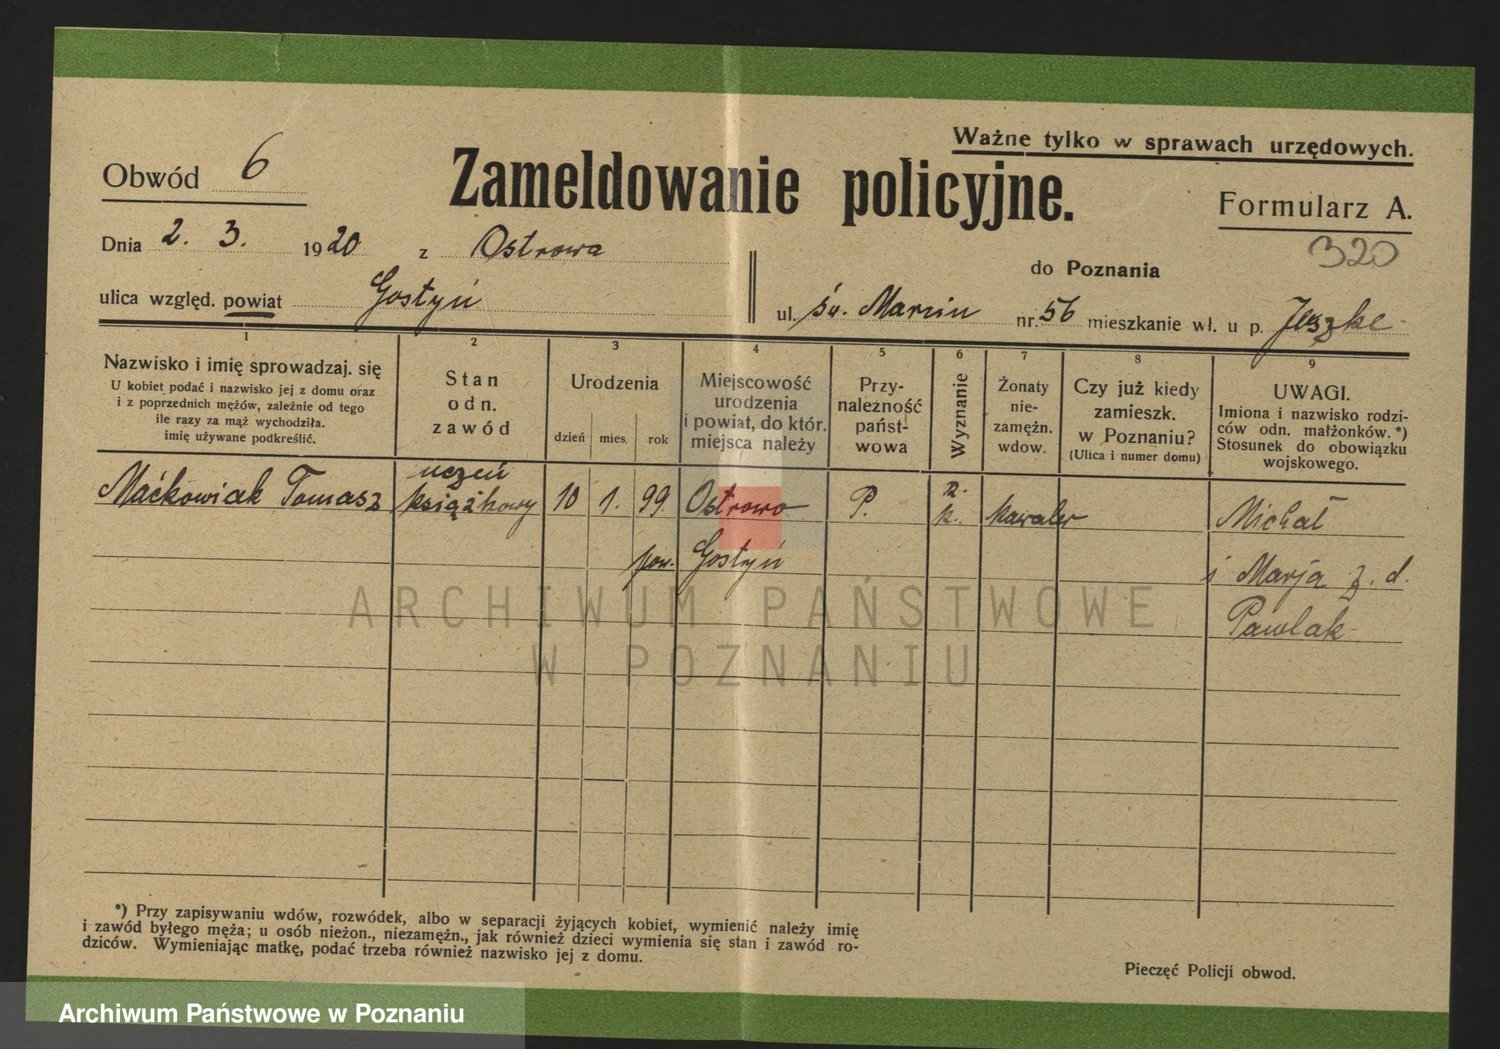 Ważne tylko w sprawach urzędowych.
Obwód 6
Zameldowanie policyjne.
Formularz A.
320
Dnia 2. 3. 1920 z Ostrowa
do Poznania
ulica względ. powiat Gostyń
ul. św. Marcin nr. 56 mieszkanie wł. u p. Jeszke
1
Nazwisko i imię sprowadzaj. się
U kobiet podać i nazwisko jej z domu oraz
i z poprzednich mężów, zależnie od tego
ile razy za mąż wychodziła.
imię używane podkreślić.
2
Stan
odn.
zawód
3
Urodzenia
dzień mies. rok
4
Miejscowość
urodzenia
i powiat, do któr.
miejsca należy
5
Przy-
należność
państ-
wowa
6
Wyznanie
7
Żonaty
nie-
zamężn.
wdow.
8
Czy już kiedy
zamieszk.
w Poznaniu?
(Ulica i numer domu)
9
UWAGI.
Imiona i nazwisko rodzi-
ców odn. małżonków.*)
Stosunek do obowiązku
wojskowego.
Maćkowiak Tomasz uczeń książkowy 10 1. 99. Ostrowo P. r. k. kawaler Michał
pow. Gostyń i Marja z. d.
Pawlak
ARCHIWUM PAŃSTWOWE
W POZNANIU
*) Przy zapisywaniu wdów, rozwódek, albo w separacji żyjących kobiet, wymienić należy imię
i zawód byłego męża; u osób nieżon., niezamężn., jak również dzieci wymienia się stan i zawód ro-
dziców. Wymieniając matkę, podać trzeba również nazwisko jej z domu.
Pieczęć Policji obwod.
Archiwum Państwowe w Poznaniu